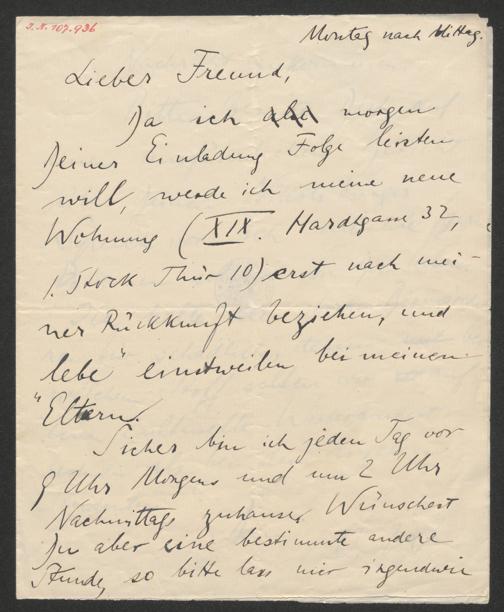 I.N. 107.936
Montag nach Mittag.
Lieber Freund,
Da ich morgen
Deiner Einladung Folge leisten
will, werde ich meine neue
Wohnung (XIX. Hardtgasse 32,
1. Stock Thür 10) erst nach mei-
ner Rückkunft beziehen, und
lebe" einstweilen bei meinen
"Eltern.
Sicher bin ich jeden Tag vor
9 Uhr Morgens und um 2 Uhr
Nachmittags zuhause, Wünschest
Du aber eine bestimmte andere
Stunde, so bitte lass mir irgendwie